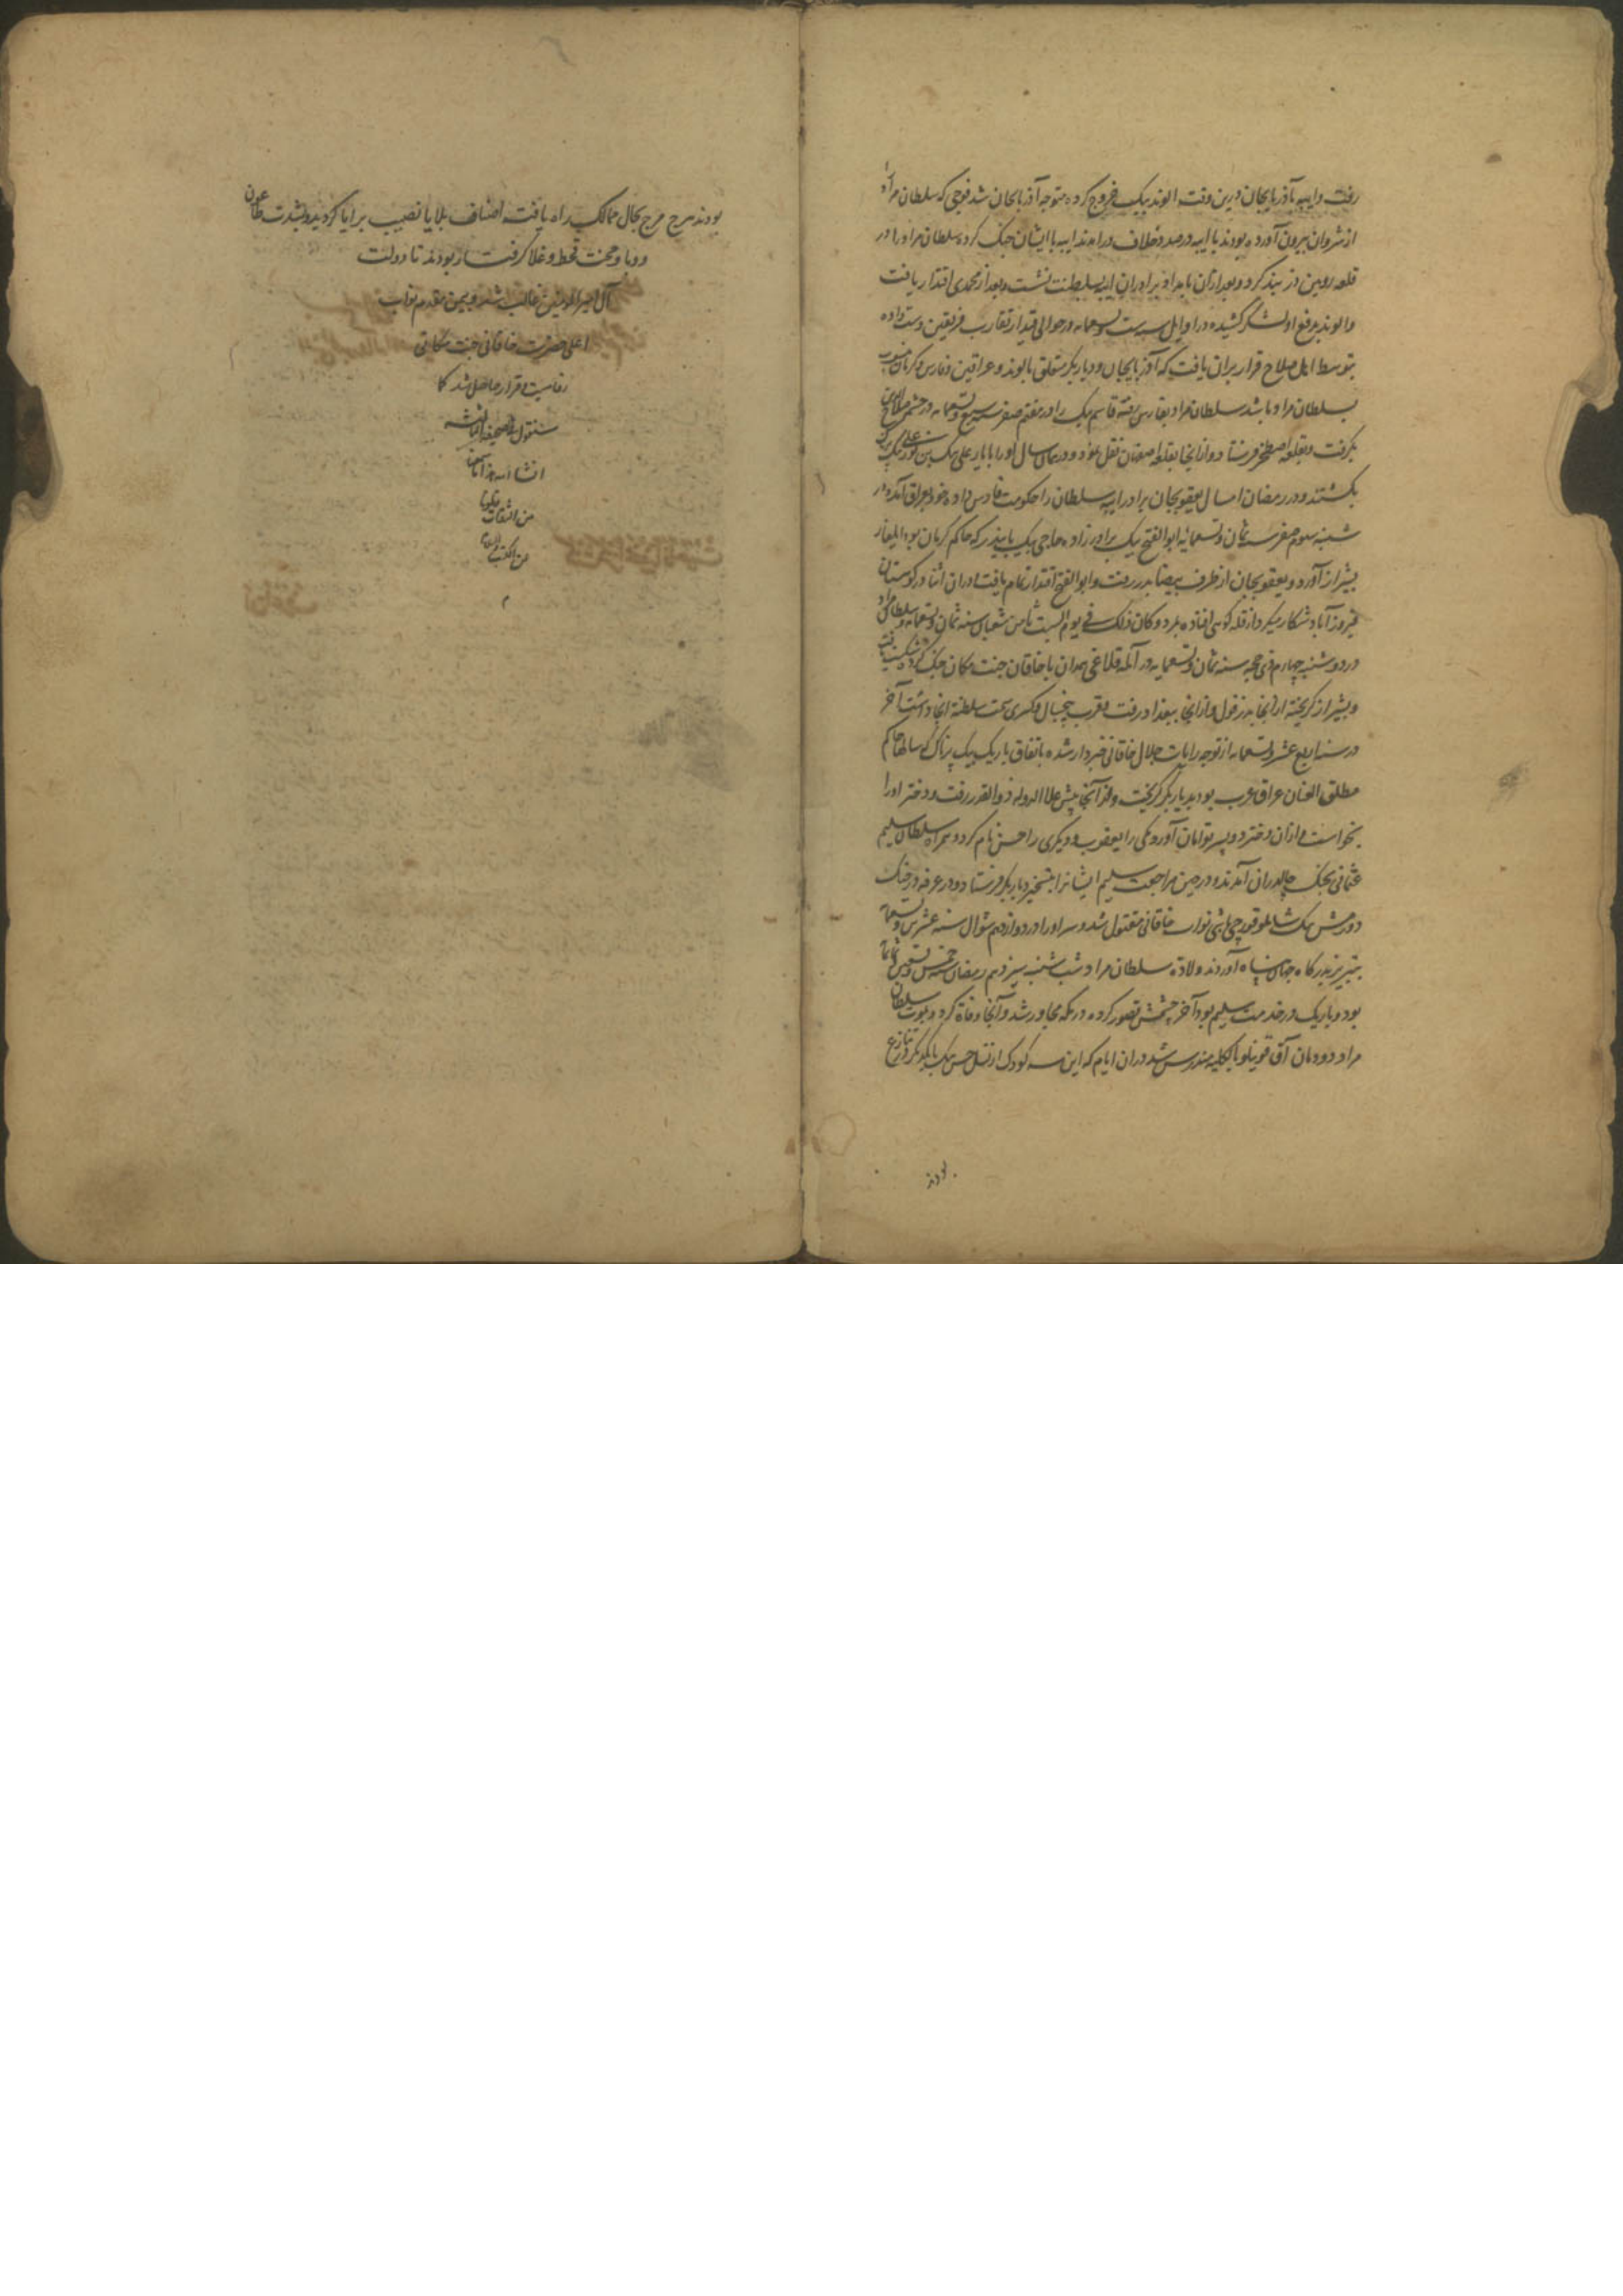 رفت و ایبه بآذربایجان درین وقت الوند بیک خروج کرده متوجه آذربایجان شد فوجی که سلطان مراد
از شروان بیرون آورده بودند با ایبه درصدد خلاف درآمدند ایبه با ایشان جنک کرده سلطان مراد را در
قلعه رویین دز بند کرد و بعد ازان با مراد برادران ایبه بسلطنت نشست و بعد از محمدی اقتدار یافت
و الوند بدفع او لشکر کشیده در اوایل سنه ست و تسعمایه در حوالی قیدار تقارب فریقین دست داده
بتوسط اهل صلاح قرار بران یافت که آذربایجان و دیاربکر متعلق بالوند و عراقین و فارس و کرمان منسوب
بسلطان مراد باشد سلطان مراد بفارس رفته قاسم بیک را در هفتم صفر سنه سبع و تسعمایه در
بکرفت و بقلعه اصطخر فرستاد و از آنجا بقلعه اصفهان نقل نمود و در همان سال او را با یار علی بیک بن
بکشتند و در رمضان امسال یعقوبجان برادر ایبه سلطان را حکومت فارس داده خود بعراق آمد و در
شنبه سوم صفر سنه ثمان و تسعمایه ابو الفتح بیک برادرزاده حاجی بیک بایندر که حاکم کرمان بود ایلغار
بشیراز آورد و یعقوبجان از طرف بیضا بدر رفت و ابو الفتح اقتدار تمام یافت دران اثنا در کوهستان
فیروزآباد شکار میکرد از قله کوهی افتاده بمرد و کان ذلک فی یوم السبت ثامن شعبان سنه ثمان و تسعمایه و سلطان مراد
در دوشنبه چهارم ذی حجه سنه ثمان و تسعمایه در آلمه قلاغی همدان با خاقان جنت مکان جنک کرد و شکست یافت
و بشیراز کریخته از آنجا بدزفول و از آنجا ببغداد رفت و قرب پنجسال و کسری تخت سلطنه آنجا داشت آخر
در سنه اربع عشر و تسعمایه از توجه رایات جلال خاقانی خبردار شده باتفاق باریک بیک پرناک که سالها حاکم
مطلق العنان عراق عرب بود بدیاربکر کریخت و از آنجا پیش علاء الدوله ذوالقدر رفت و دختر او را
بخواست و ازان دختر دو پسر توامان آورد یکی را یعقوب و دیکری را حسن نام کرد و همراه سلطان سلیم
عثمانی بجنک چالدران آمدند و در حین مراجعت سلیم ایشانرا بتسخیر دیاربکر فرستاد و در عرفه در جنک
دورمش بیک شاملو قورچی باشی نواب خاقانی مقتول شد و سر او را در دوازدهم شوال سنه عشرین و تسعمایه
بتبریز بدرکاه جهان پناه آوردند ولادة سلطان مراد شب شنبه سیزدهم رمضان سنه خمس و تسعین و ثمانمایه
بود و باریک در خدمت سلیم بود آخر چشمش قصور کرده در مکه مجاور شد و آنجا وفاة کرد و بموت سلطان
مراد دودمان آق قوینلو بالکلیه مندرس شد دران ایام که این سه کودک از نسل حسن بیک با یکدیکر در تنازع
بودند
بودند هرج مرج بحال ممالک راه یافت اصناف بلایا نصیب برایا کردید و بشدت طاعون
و وبا و محنت قحط و غلا کرفتار بودند تا دولت
آل امیر المؤمنین غالب شد و بیمن مقدم نواب
اعلی حضرت خاقانی جنت مکانی
رفاهیت و قرار حاصل شد کما
سنقول فی صحیفة الثالثه
انشا الله تعالی
من الثقات
من الکتب
م